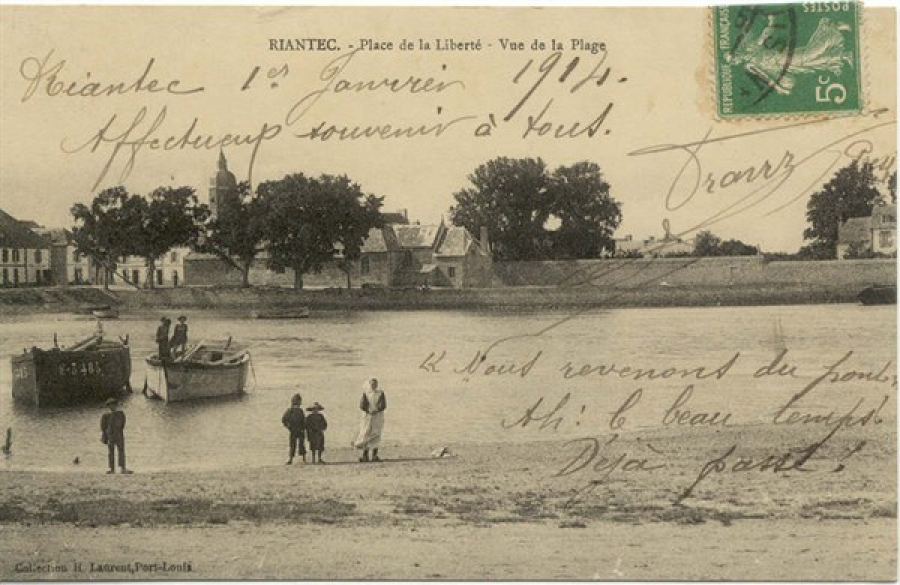 RIANTEC. - Place de la Liberté - Vue de la Plage
RÉPUBLIQUE FRANÇAISE
POSTES
5c
Riantec 1er Janvier 1914.
Affectueux souvenir à tous.
Nous revenons du pont,
Ah! le beau temps
Déjà passé!
Collection H. Laurent, Port-Louis